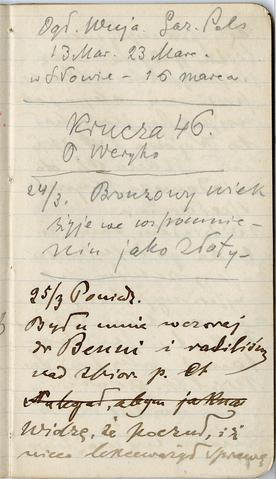 Ogł. Wuja. Gaz. Pols
13 Mar. 23 Marc.
w Słowie - 15 marca
Krucza 46.
P. Weryho
24/3. Bronzowy wiek
żyje we wspomnie-
niu jako złoty-
25/3 Poniedz.
Był u mnie wczoraj
dr Benni i radziliśmy
nad zbior. p.
Nalegał, abym
Widzę, że poczuł, iż
nieco lekceważył sprawę